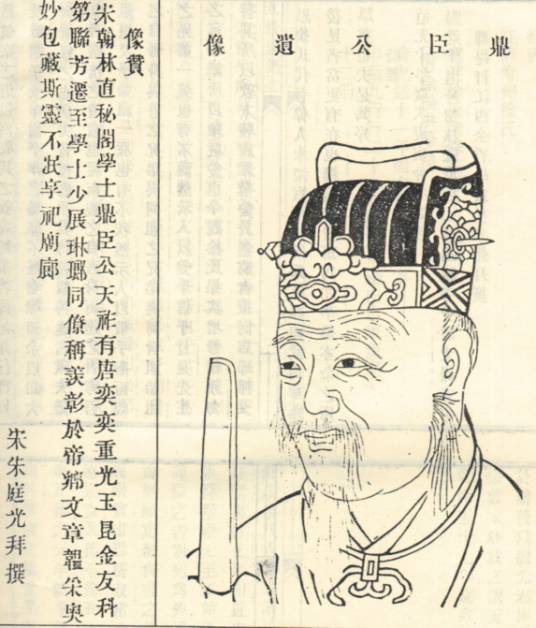 鼎臣公遺像
像贊
宋翰林直秘閣學士鼎臣公天祚有唐奕奕重光玉昆金友科
第聯芳遷至學士少展琳瑯同僚稱羡彰於帝鄉文章韞采奧
妙包藏斯靈不泯享祀廟廊
宋朱庭光拜撰